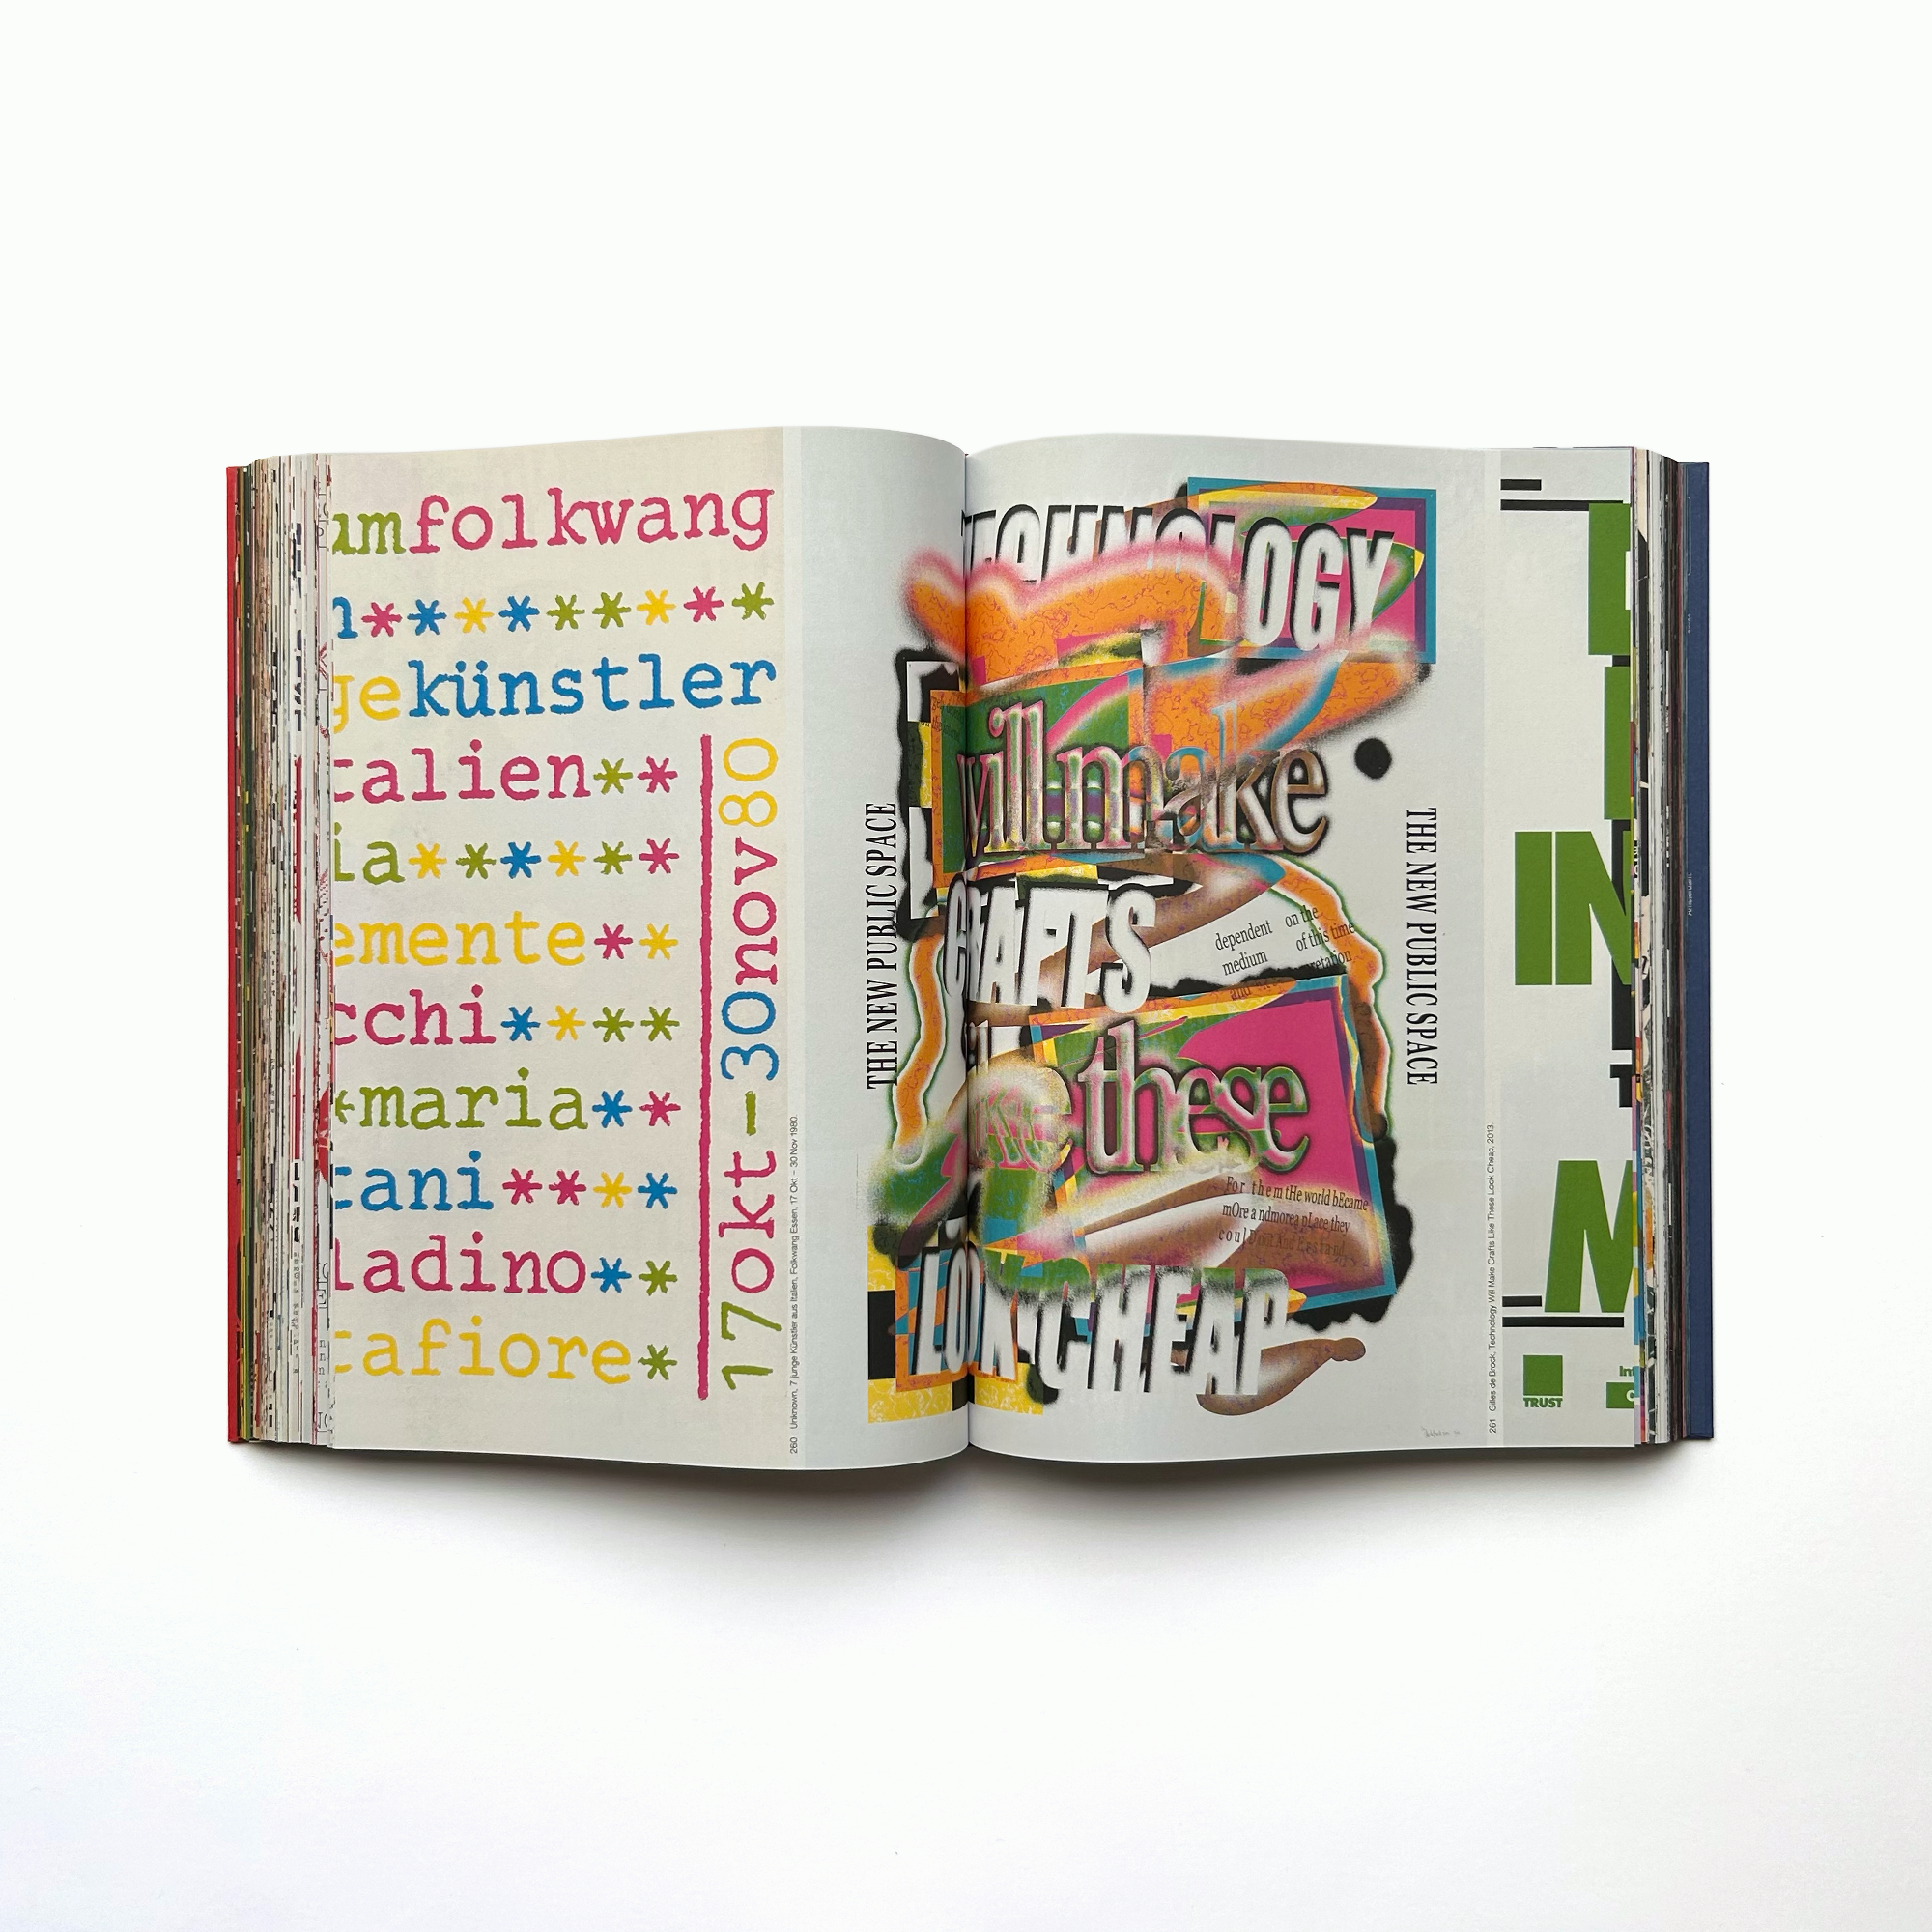 umfolkwang
n*********
gekünstler
talien**
ia******
emente**
cchi****
*maria**
tani****
ladino**
tafiore*
17okt-30nov80
260 Unknown, 7 junge Künstler aus Italien, Folkwang Essen, 17 Okt – 30 Nov 1980.
THE NEW PUBLIC SPACE
TECHNOLOGY
will make
CRAFTS
dependent on the
of this time
medium
these
For them tHe world bEcame
mOre a ndmorea pLace they
LOOK CHEAP
THE NEW PUBLIC SPACE
261 Gilles de Brock, Technology Will Make Crafts Like These Look Cheap, 2013.
IN
M
TRUST